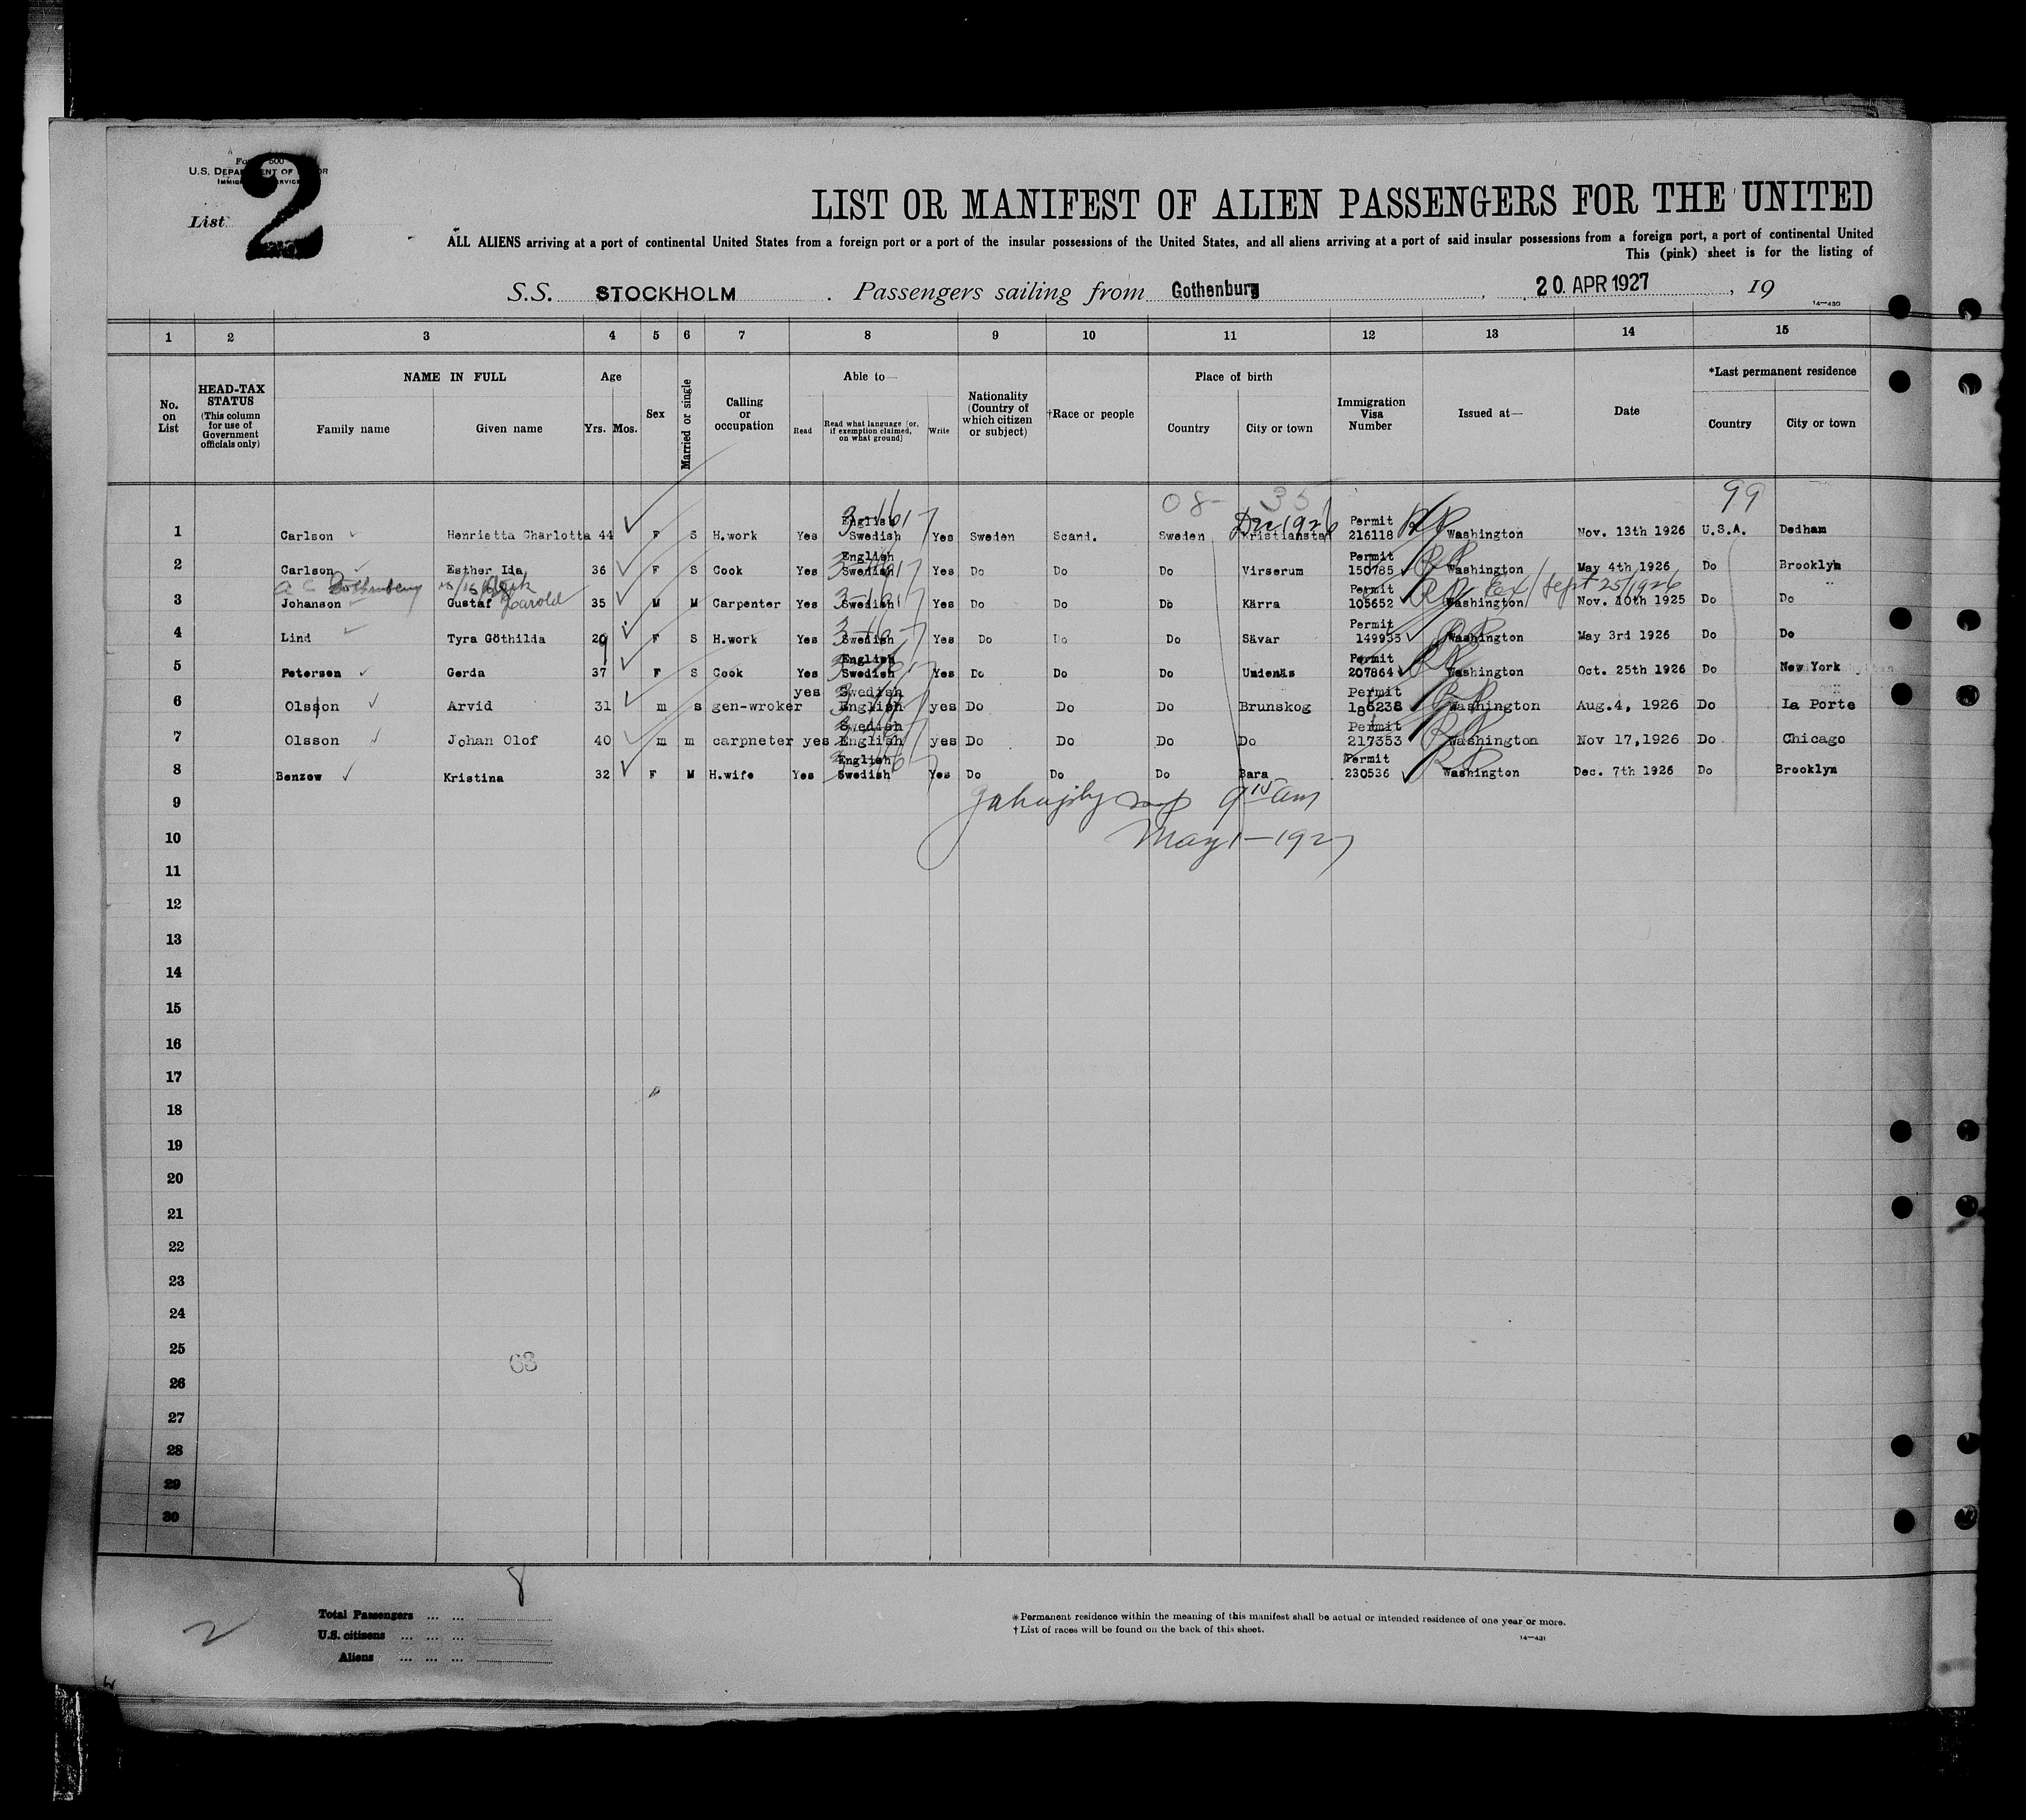 2
List
LIST OR MANIFEST OF ALIEN PASSENGERS FOR THE UNITED
ALL ALIENS arriving at a port of continental United States from a foreign port or a port of the insular possessions of the United States, and all aliens arriving at a port of said insular possessions from a foreign port, a port of continental United
This (pink) sheet is for the listing of
S.S. STOCKHOLM . Passengers sailing from Gothenburg , 20. APR 1927 , 19
14—430
1 2 3 4 5 6 7 8 9 10 11 12 13 14 15
No. on List
HEAD-TAX STATUS (This column for use of Government officials only)
NAME IN FULL
Family name Given name
Age
Yrs. Mos.
Sex
Married or single
Calling or occupation
Able to—
Read
Read what language [or, if exemption claimed, on what ground]
Write
Nationality (Country of which citizen or subject)
†Race or people
Place of birth
Country City or town
Immigration Visa Number
Issued at—
Date
*Last permanent residence
Country City or town
08- 35 99
Dec 1926
1 Carlson Henrietta Charlotta 44 F S H.work Yes English Swedish Yes Sweden Scand. Sweden Kristianstad Permit 216118 Washington Nov. 13th 1926 U.S.A. Dedham
2 Carlson Esther Ida 36 F S Cook Yes English Swedish Yes Do Do Do Virserum Permit 150785 Washington May 4th 1926 Do Brooklyn
Harold Sept 25/1926
3 Johanson Gustaf 35 M M Carpenter Yes Swedish Yes Do Do Do Kärra Permit 105652 Washington Nov. 10th 1925 Do Do
4 Lind Tyra Göthilda 29 F S H.work Yes Swedish Yes Do Do Do Sävar Permit 149935 Washington May 3rd 1926 Do Do
5 Peterson Gerda 37 F S Cook Yes English Swedish Yes Do Do Do Undenäs Permit 207864 Washington Oct. 25th 1926 Do New York
6 Olsson Arvid 31 m s gen-wroker yes Swedish English yes Do Do Do Brunskog Permit 185238 Washington Aug.4, 1926 Do La Porte
7 Olsson Johan Olof 40 m m carpneter yes Swedish English yes Do Do Do Do Permit 217353 Washington Nov 17,1926 Do Chicago
8 Benzow Kristina 32 F M H.wife Yes English Swedish Yes Do Do Do Bara Permit 230536 Washington Dec. 7th 1926 Do Brooklyn
9 9 15 am
10 May 1 - 1927
11
12
13
14
15
16
17
18
19
20
21
22
23
24
25
68
26
27
28
29
30
8
2
Total Passengers ... ...
U.S. citizens ... ... ...
Aliens ... ... ...
*Permanent residence within the meaning of this manifest shall be actual or intended residence of one year or more.
†List of races will be found on the back of this sheet.
14—431